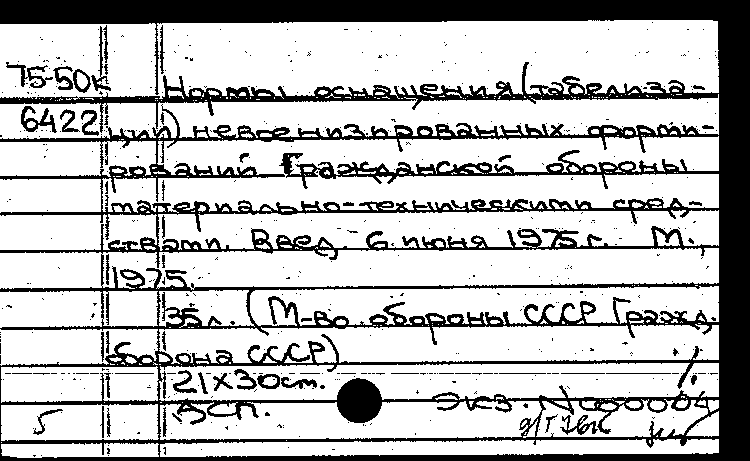 75-50к Нормы оснащения (табелиза-
6422 ции) невоенизированных форми-
рований Гражданской обороны
материально-техническими сред-
ствами. Введ. 6 июня 1975 г. М.,
1975.
35л. (М-во обороны СССР Гражд.
оборона СССР)
21х30см.
ДСП. Экз. №00004
5